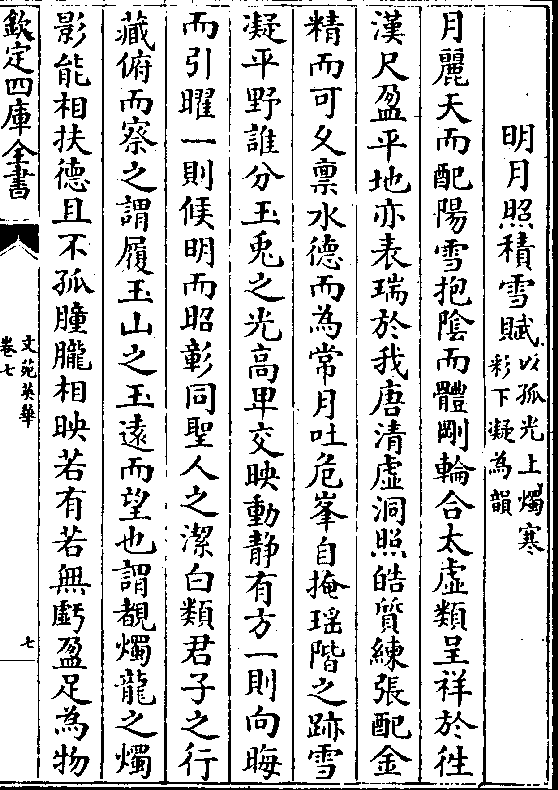 明月照積雪賦以孤光上燭寒
彩下凝為韻
月麗天而配陽雪抱陰而體剛輪合太虛類呈祥於徃
漢尺盈平地亦表瑞於我唐清虛洞照皓質練張配金
精而可久禀水德而為常月吐危峯自掩瑶階之跡雪
凝平野誰分玉兎之光高卑交映動静有方一則向晦
而引曜一則候明而昭彰同聖人之潔白類君子之行
藏俯而察之謂履玉山之玉遠而望也謂覩燭龍之燭
影能相扶德且不孤朣朧相映若有若無虧盈足為物
欽定四庫全書
文苑英華
卷七
七